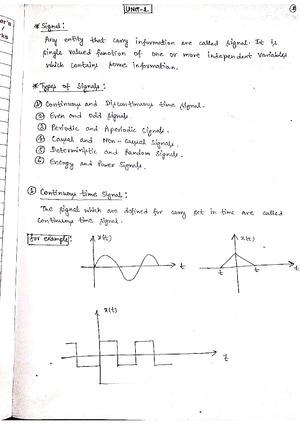 UNIT-1.
* Signal:
Any entity that carry information are called signal. It is
single valued function of one or more independent variables
which contains some information.
* Types of Signals:
① Continuous and Discontinuous time signal.
② Even and odd signals.
③ Periodic and Aperiodic signals.
④ Causal and Non-Causal signals.
⑤ Deterministic and Random signals.
⑥ Energy and Power signals.
① Continuous time signal:
The signal which are defined for every set in time are called
continuous time signal.
For example:
x(t)
t
x(t)
t
t
x(t)
t